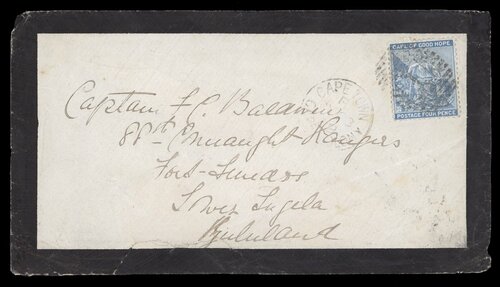 CAPE OF GOOD HOPE
POSTAGE FOUR PENCE
CAPE TOWN
Captain F. C. Baldwin
88th Connaught Rangers
Fort
Lower Tugela
Zululand